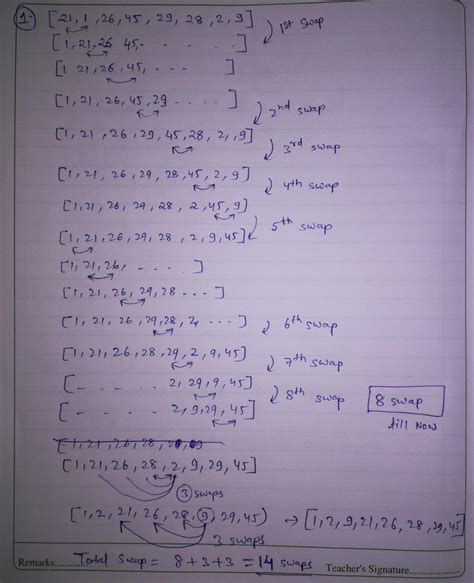 1. [21, 1, 26, 45, 29, 28, 2, 9]
1st swap
[1, 21, 26 45, - . . . .]
[1 21, 26, 45, - . . . ]
[1, 21, 26, 45, 29 . . . . ]
2nd swap
[1, 21, 26, 29, 45, 28, 2, , 9]
3rd swap
[1, 21, 26, 29, 28, 45, 2, 9]
4th swap
[1, 21, 26, 29, 28, 2, 45, 9]
5th swap
[1, 21, 26, 29, 28, 2, 9, 45]
[1, 21, 26, - . . . ]
[1, 21, 26, 29, 28 - - - ]
[1, 21, 26, 29, 28, 2, . . . ]
6th swap
[1, 21, 26, 28, 29, 2, 9, 45]
7th swap
[ - . . . . 2, 29, 9, 45]
8th swap
8 swap
till now
[ - . . . . 2, 9, 29, 45]
[1, 21, 26, 28, 2, 9, 29, 45]
3 swaps
[1, 2, 21, 26, 28, 9, 29, 45) → [1, 2, 9, 21, 26, 28, 29, 45]
3 swaps
Remarks.......... Total swap = 8+3+3 = 14 swaps Teacher's Signature..........